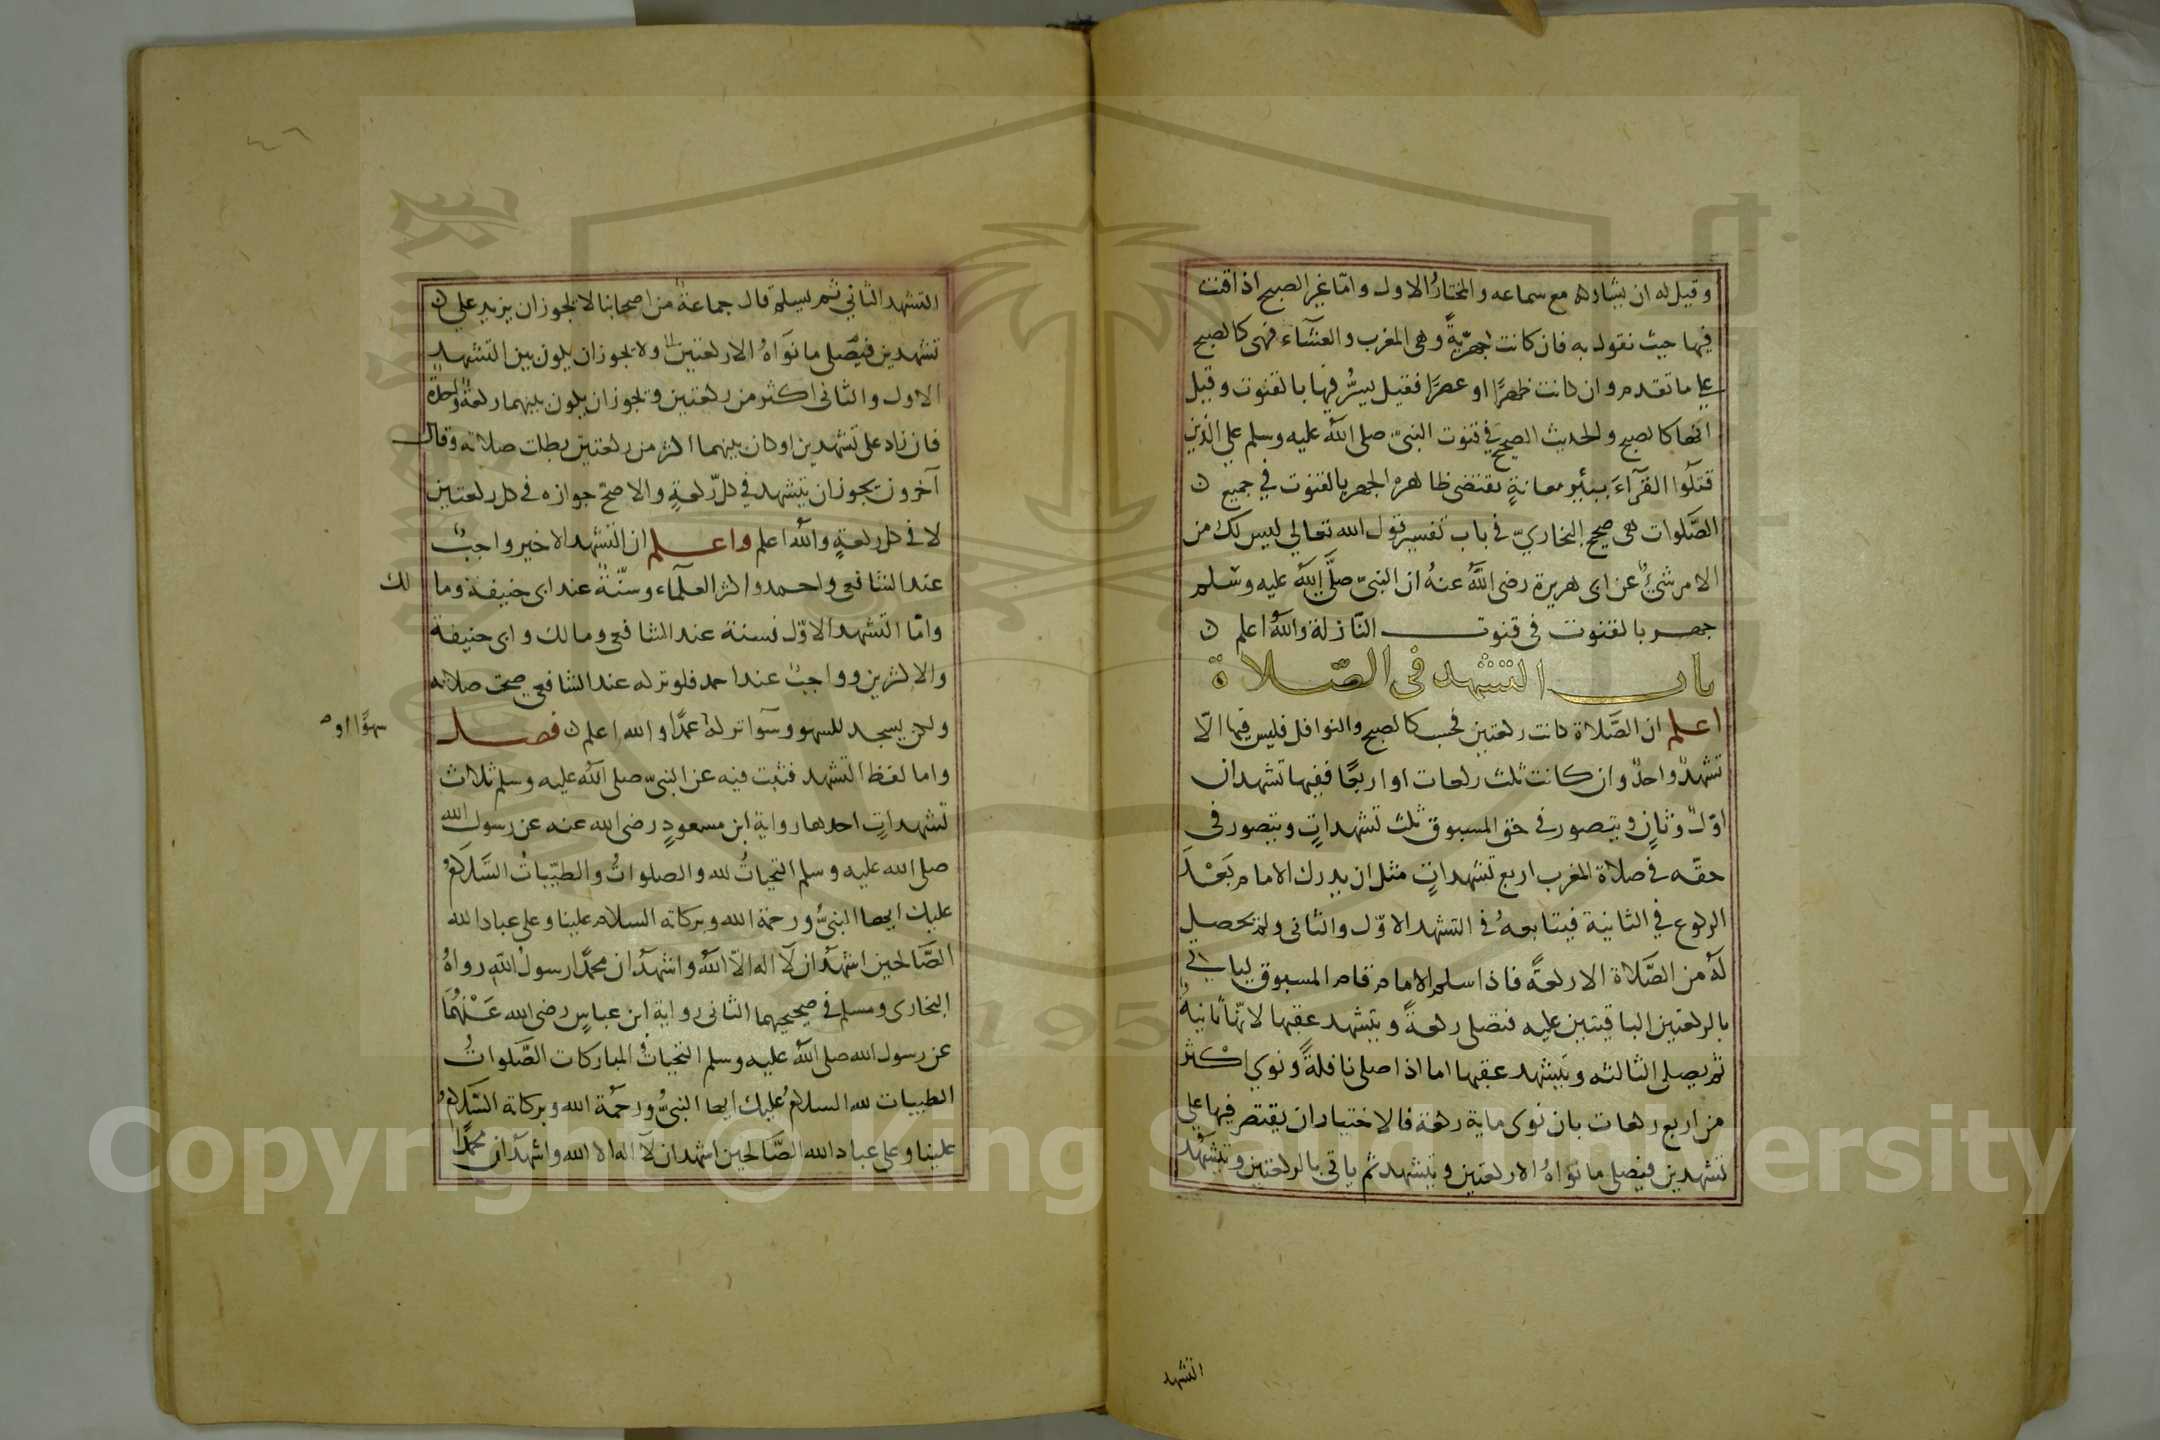 وقيل له ان يشاركه مع سماعه والمختارُ الاول وامّا غير الصبح اذا قنت
فيها حيث نقول به فان كانت جهريّةً وهى المغرب والعشآء فهى كالصبح
على ما تقدم وان كانت ظهرًا او عصرًا فقيل يسرُّ فيها بالقنوت وقيل
انها كالصبح والحديث الصحيح في قنوت النبىّ صلى الله عليه وسلم على الذين
قتلوا القرّآءَ ببئر معانةٍ يقتضى ظاهره الجهر بالقنوت في جميع ن
الصّلوات هى صحيح البخاريّ في باب تفسير قول الله تعالى ليس لك من
الامر شىءٌ عن ابى هريرة رضى اللّٰه عنهُ ان النبىّ صلّى الله عليه وسلم
جهر بالقنوت فى قنوت النّازلة والله اعلم ن
باب التشهد فى الصّلاة
اعلم ان الصَّلاة كانت ركعتين فحسب كالصبح والنوافل فليس فيها الّا
تشهدٌ واحدٌ وان كانت ثلث ركعات او اربعًا ففيها تشهدان
اوّلٌ وثانٍ ويتصور في حق المسبوق ثلث تشهداتٍ ويتصور فى
حقّه في صلاة المغرب اربع تشهداتٍ مثل ان يدرك الامام بَعْدَ
الركوع في الثانية فيتابعهُ فى التشهد الاوّل والثانى ولم يحصل
لهُ من الصَّلاة الا ركعةً فاذا سلم الامام قام المسبوق لياتى
بالركعتين الباقيتين عليه فيصلى ركعةً ويتشهد عقبها لانّها ثانيةٌ
ثم يصلى الثالثه ويتشهد عقبها اما اذا صلى نافلةً ونوى اكثر
من اربع ركعات بان نوى ماية ركعة فالاختيار ان يقتصر فيها على
تشهدين فيصلى ما نواهُ الا ركعتين ويتشهد ثم ياتى بالركعتين ويتشهّد
التشهد
التشهد الثاني ثم يسلم قال جماعةٌ من اصحابنا لا يجوز ان يزيد على ن
تشهدين فيصّلى ما نوَاهُ الا ركعتين ولا يجوز ان يكون بين التشهد
الاول والثانى اكثر من ركعتين ويجوز ان يكون بينهما ركعةٌ واحدةٌ
فان زاد على تشهدين او كان بينهما اكثر من ركعتين بطلت صلاته وقال
آخرون يجوز ان يتشهد في كلّ ركعةٍ والاصحّ جوازه فى كل ركعتين
لا فى كل ركعةٍ والله اعلم واعلم ان التشهد الاخير واجبٌ
عند الشافعى واحمد واكثر العلمآء وسنّةٌ عند ابى حنيفة وما
لك
وامّا التشهد الاوّل فسنة عند الشافعى ومالك وابى حنيفة
والاكثرين وواجبٌ عند احمد فلو تركه عند الشافعى صحت صلاته
ولكن يسجد للسهو وسوآ تركه عمدًا والله اعلم ن فصل
سهوًا او
واما لفظ التشهد فثبت فيه عن النبىّ صلى الله عليه وسلم ثلاث
تشهداتٍ احدها رواية ابن مسعودٍ رضى الله عنه عن رسول الله
صلى الله عليه وسلم التحياتُ لله والصلواتُ والطيّباتُ السَّلامُ
عليك ايها النبىُّ ورحمة الله وبركاته السلام علينا وعلى عباد الله
الصّالحين اشهدُ ان لآ اله الّا اللّٰه واشهدُ ان محمّدًا رسولُ اللّٰهِ رواهُ
البخارى ومسلم فى صحيحيهما الثانى رواية ابن عباسٍ رضى الله عَنْهُمَا
عن رسول الله صلى الله عليه وسلم التحياتُ المباركات الصَّلواتُ
الطيبات لله السلامُ عليك ايها النبىُّ ورحمة الله وبركاته السّلامُ
علينا وعلى عباد الله الصّالحين اشهد ان لآ اله الا الله واشهدُ ان محمدًا
Copyright © King Saud University